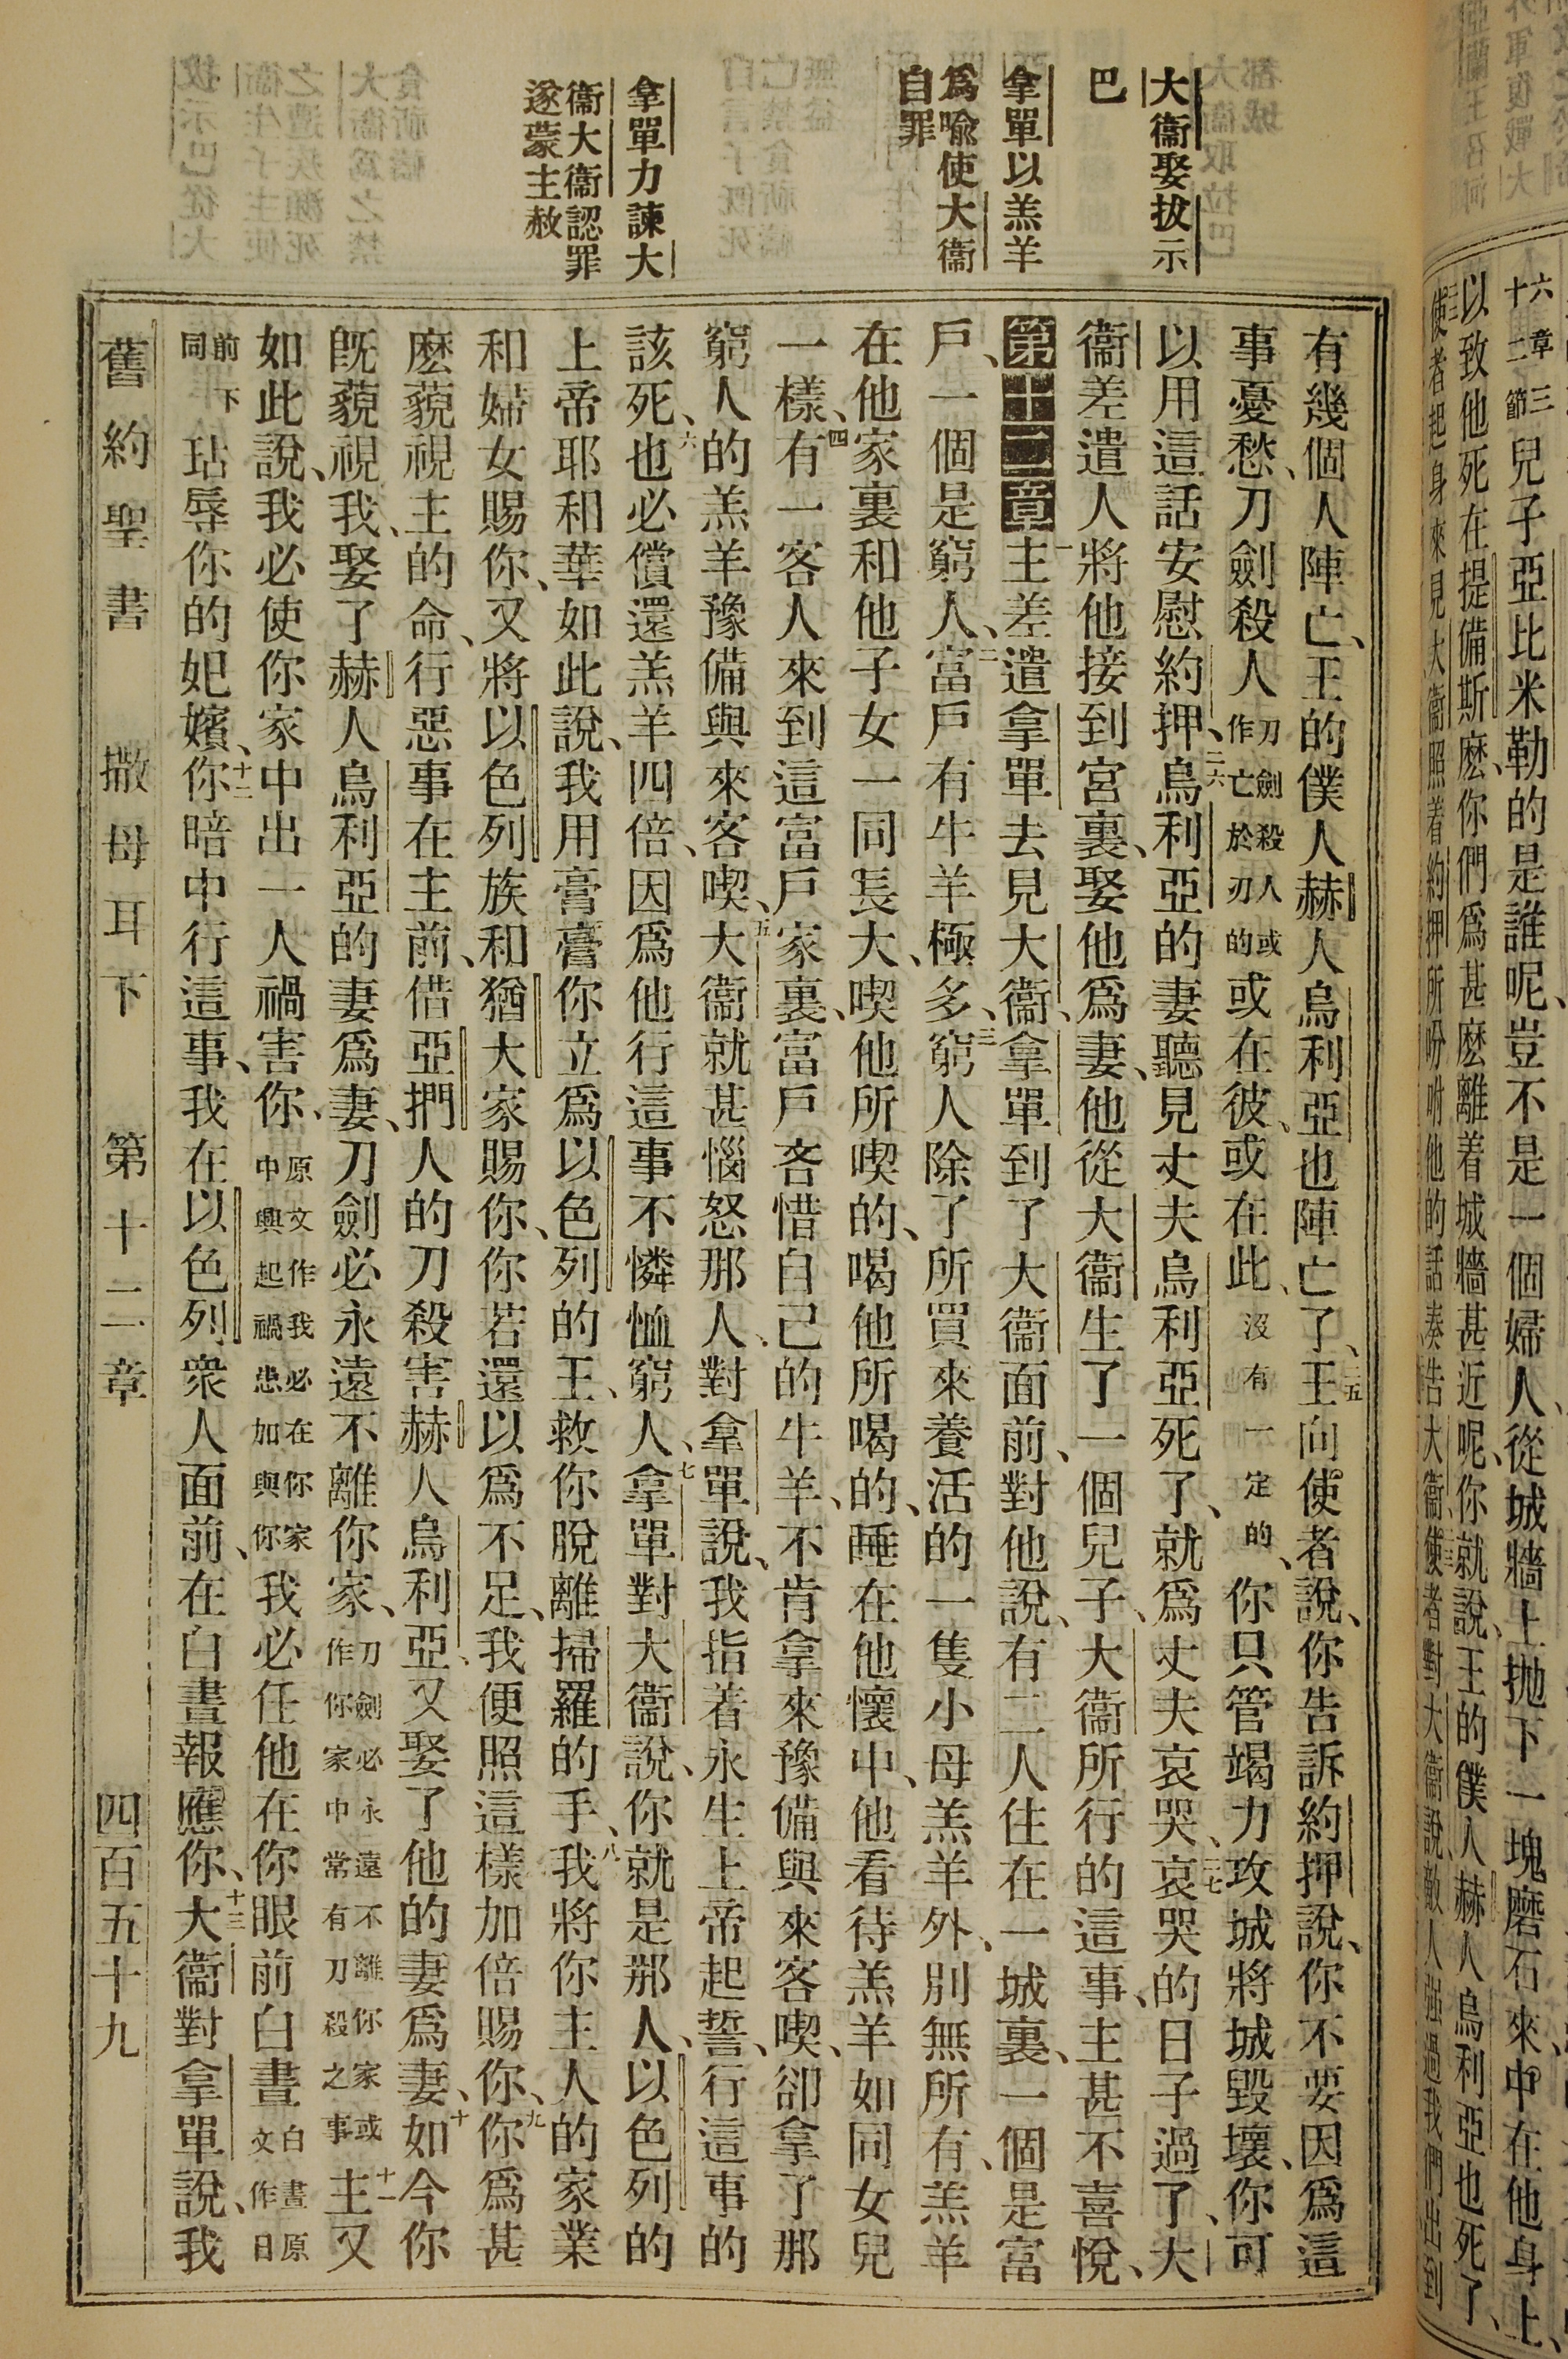 六章三
十二節
兒子亞比米勒的是誰呢、豈不是一個婦人、從城牆上拋下一塊磨石來、中在他身上、
以致他死在提備斯麽、你們爲甚麽離着城牆甚近呢、你就說、王的僕人赫人烏利亞也死了、
使者起身來見大衞、照着約押所吩咐他的話奏告大衞、使者對大衞說、敵人强過我們、出到
大衞娶拔示
巴
拿單以羔羊
爲喩使大衞
自罪
拿單力諫大
衞大衞認罪
遂蒙主赦
有幾個人陣亡、王的僕人赫人烏利亞也陣亡了、二五王向使者說、你告訴約押說、你不要因爲這
事憂愁、刀劍殺人刀劍殺人或作亡於刃的或在彼、或在此、沒有一定的、你只管竭力攻城、將城毀壞、你可
以用這話安慰約押、二六烏利亞的妻聽見丈夫烏利亞死了、就爲丈夫哀哭、二七哀哭的日子過了、大
衞差遣人將他接到宮裏、娶他爲妻、他從大衞生了一個兒子、大衞所行的這事、主甚不喜悅、
第十二章一主差遣拿單去見大衞、拿單到了大衞面前、對他說、有二人住在一城裏、一個是富
戶、一個是窮人、二富戶有牛羊極多、三窮人除了所買來養活的一隻小母羔羊外、別無所有、羔羊
在他家裏和他子女一同長大、喫他所喫的、喝他所喝的、睡在他懷中、他看待羔羊如同女兒
一樣、四有一客人來到這富戶家裏、富戶吝惜自己的牛羊、不肯拿來豫備與來客喫、卻拿了那
窮人的羔羊豫備與來客喫、五大衞就甚惱怒那人、對拿單說、我指着永生上帝起誓、行這事的
該死、六也必償還羔羊四倍、因爲他行這事不憐恤窮人、七拿單對大衞說、你就是那人、以色列的
上帝耶和華如此說、我用膏膏你立爲以色列的王、救你脫離掃羅的手、八我將你主人的家業
和婦女賜你、又將以色列族和猶大家賜你、你若還以爲不足、我便照這樣加倍賜你、九你爲甚
麽藐視主的命、行惡事在主前、借亞捫人的刀殺害赫人烏利亞、又娶了他的妻爲妻、十如今你
既藐視我、娶了赫人烏利亞的妻爲妻、刀劍必永遠不離你家、刀劍必永遠不離你家或作你家中常有刀殺之事十一主又
如此說、我必使你家中出一人禍害你、原文作我必在你家中興起禍患加與你我必任他在你眼前白晝白晝原文作日
前下同玷辱你的妃嬪、十二你暗中行這事、我在以色列衆人面前、在白晝報應你、十三大衞對拿單說、我
舊約聖書　撒母耳下　第十二章　四百五十九